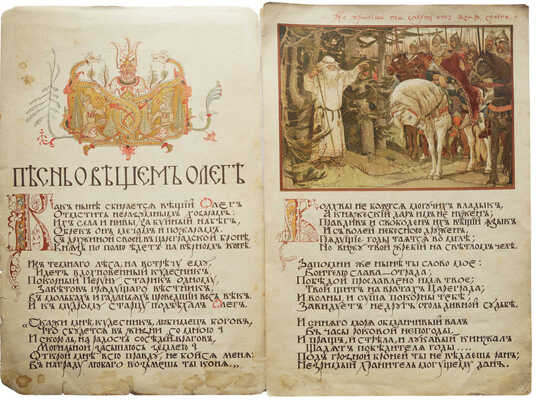 ПѢСНЬ О ВѢЩЕМЪ ОЛЕГѢ
Какъ нынѣ сбирается вѣщій Олегъ
Отмстить неразумнымъ хозарамъ:
Ихъ села и нивы за буйный набѣгъ
Обрекъ онъ мечамъ и пожарамъ.
Съ дружиной своей, въ цареградской бронѣ,
Князь по полю ѣдетъ на вѣрномъ конѣ.
Изъ темнаго лѣса, на встрѣчу ему,
Идетъ вдохновенный кудесникъ,
Покорный Перуну старикъ одному,
Завѣтовъ грядущаго вѣстникъ,
Въ мольбахъ и гаданьяхъ проведшій весь вѣкъ.
И къ мудрому старцу подъѣхалъ Олегъ.
«Скажи мнѣ, кудесникъ, любимецъ боговъ,
Что сбудется въ жизни со мною?
И скоро ль, на радость сосѣдей враговъ,
Могильной засыплюсь землею?
Открой мнѣ всю правду, не бойся меня:
Въ награду любаго возьмешь ты коня...»
Но примешь ты смерть отъ коня своего
Волхвы не боятся могучихъ владыкъ,
А княжескій даръ имъ не нуженъ;
Правдивъ и свободенъ ихъ вѣщій языкъ
И съ волей небесною друженъ.
Грядущіе годы таятся во мглѣ;
Но вижу твой жребій на свѣтломъ челѣ.
Запомни же нынѣ ты слово мое:
Воителю слава — отрада;
Побѣдой прославлено имя твое;
Твой щитъ на вратахъ Цареграда;
И волны, и суша покорны тебѣ;
Завидуетъ недругъ столь дивной судьбѣ.
И синяго моря обманчивый валъ
Въ часы роковой непогоды...
И пращъ, и стрѣла, и лукавый кинжалъ
Щадятъ побѣдителя годы...
Подъ грозной броней ты не вѣдаешь ранъ;
Незримый хранитель могущему данъ.